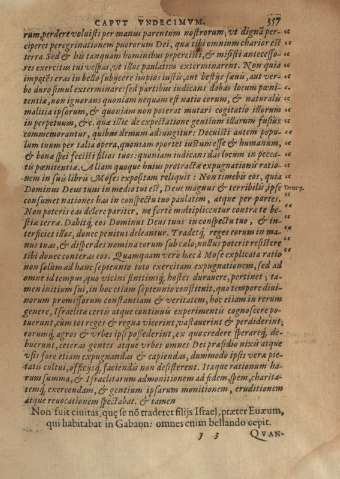 CAPVT VNDECIMVM. 357
rum, perdere voluisti per manus parentum nostrorum, vt dignã per-
ciperet peregrinationem puerorum Dei, quæ tibi omnium charior est
terra. Sed & his tanquam hominibus pepercisti, & misisti antecesso-
res exercitus tui vespas, vt illos paulatim exterminarent. Non quia
impotẽs eras in bello subijcere impios iustis, aut bestijs sæuis, aut ver-
bo duro simul exterminare: sed partibus iudicans dabas locum pœni-
tentiæ, non ignorans quoniam nequam est natio eorum, & naturalis
malitia ipsorum, & quoniam non poterat mutari cogitatio illorum
in perpetuum, &c. quæ ille de expectatione gentium illarum fusius
commemorans, quibus demum adiungitur: Docuisti autem popu-
lum tuum per talia opera, quoniam oportet iustum esse & humanum,
& bonæ spei fecisti filios tuos: quoniam iudicans das locum in pecca-
tis pœnitentiæ. Aliam quoque huius protractæ expugnationis ratio-
nem in sua libris Moses expositam reliquit: Non timebis eos, quia
Dominus Deus tuus in medio tui est, Deus magnus & terribilis: ipse
consumet nationes has in conspectu tuo paulatim, atque per partes.
Non poteris eas delere pariter, ne fortè multiplicentur contra te be-
stiæ terræ. Dabitq; eos Dominus Deus tuus in conspectu tuo, & in-
terficiet illos, donec penitus deleantur. Tradetq; reges eorum in ma-
nus tuas, & disperdes nomina eorum sub cælo, nullus poterit resistere
tibi donec conteras eos. Quamquam verò hæc à Mose explicata ratio
non solum ad hanc septennio toto exercitam expugnationem, sed ad
omne id tempus, quo vicini finitimiq; hostes durauere, pertinet; ta-
men initium sui, in hoc etiam septennio constituit, quo tempore diui-
norum promissorum constantiam & veritatem, hoc etiam in rerum
genere, Israelitæ certis atque continuis experimentis cognoscere po-
tuerunt, cùm tot reges & regna vicerint, vastauerint & perdiderint,
eorumq; agros & vrbes ipsi possederint, ex quo credere sperareq; de-
buerunt, cæteras gentes atque vrbes omnes Dei præsidio nixis atque
vsis fore etiam expugnandas & capiendas, dummodo ipsi vera pie-
tatis cultui, officijsq; faciendis non desisterent. Itaque rationum ha-
rum summa, & Israelitarum admonitionem ad fidem, spem, charita-
temq; exercendam, & gentium ipsarum monitionem, eruditionem
atque reuocationem spectabat. & tamen
Non fuit ciuitas, quę se nõ traderet filijs Israel, præter Euæum,
qui habitabat in Gabaon: omnes enim bellando cepit.
QVAN-